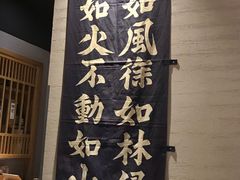 如風徐如林侵
如火不動如山